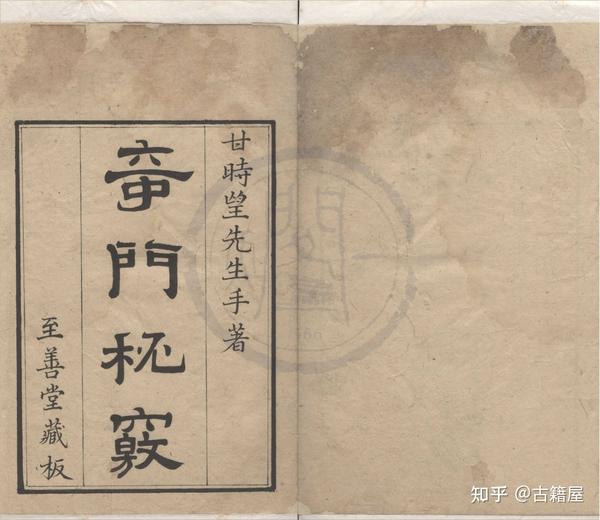 甘時望先生手著
竒門秘竅
至善堂藏板
知乎 @古籍屋